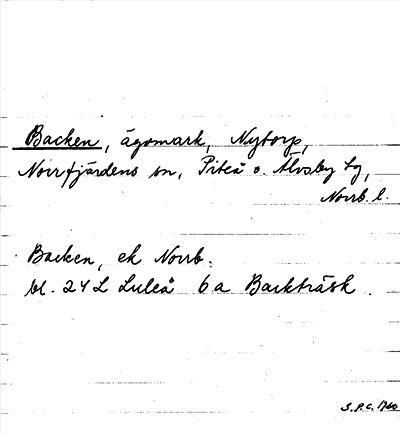 Backen, ägomark, Nytorp,
Norrfjärdens sn, Piteå o. Älvsby tg,
Norrb. l.
Backen, ek Norrb.
bl. 24 L Luleå 6a Backträsk.
S.P.C. 1960